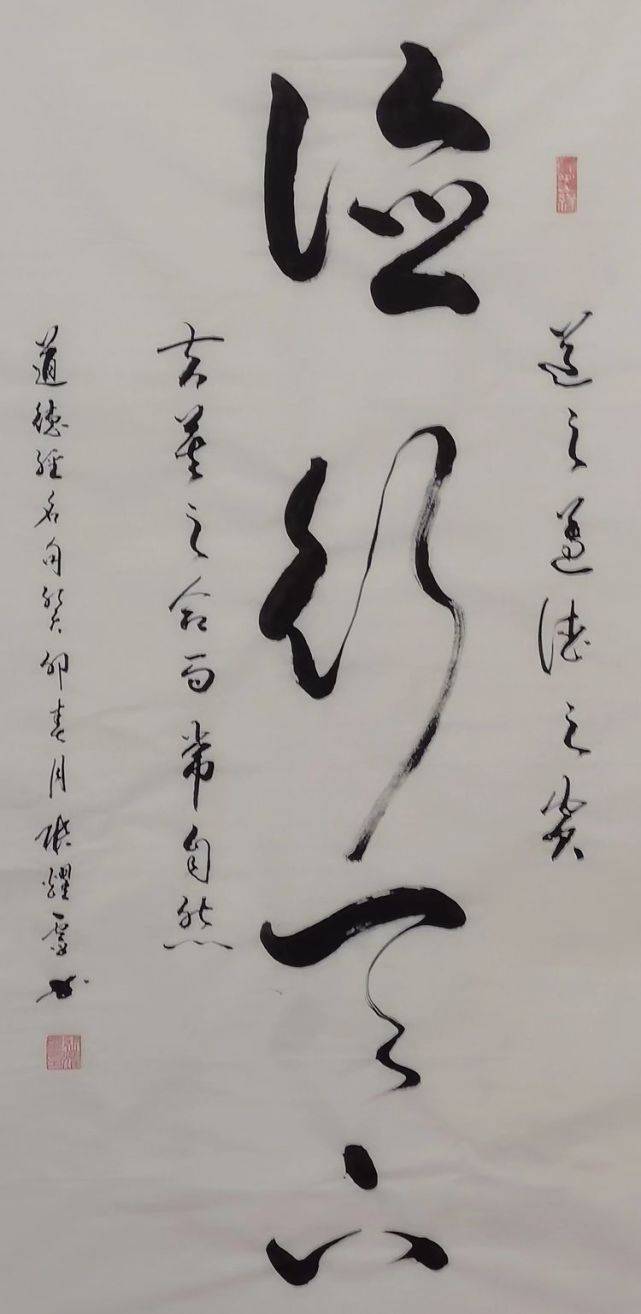 道之尊德之贵
德行天下
夫莫之命而常自然
道德经名句癸卯春月张耀书